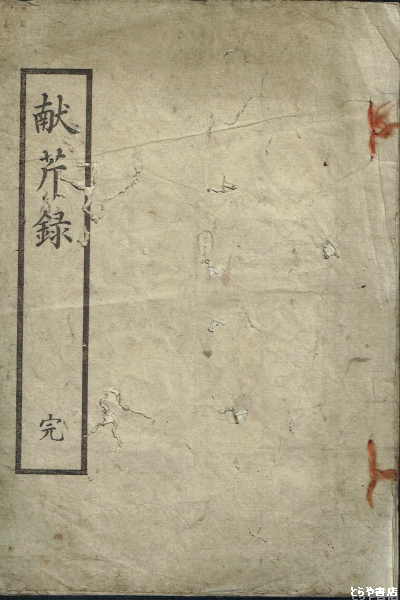 献芹録
完
とらや書店